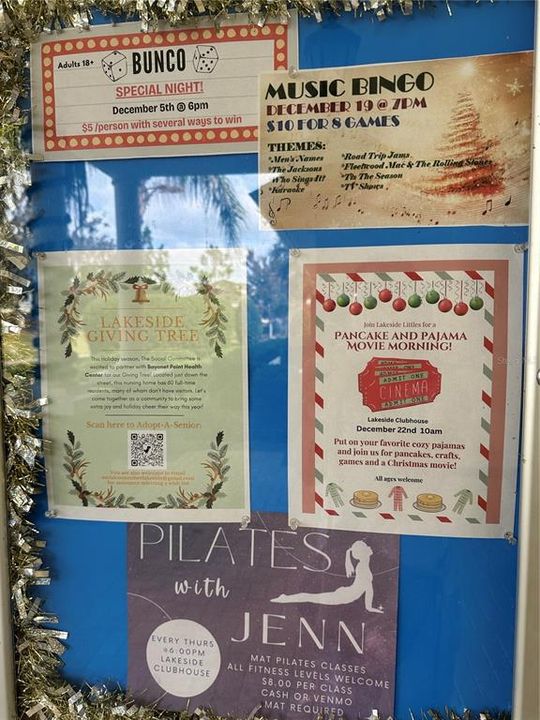 Adults 18+
BUNCO
SPECIAL NIGHT!
December 5th @ 6pm
$5 /person with several ways to win
MUSIC BINGO
DECEMBER 19 @ 7PM
$10 FOR 8 GAMES
THEMES:
*Men's Names
*The Jacksons
*Who Sings It?
*Karaoke
*Road Trip Jams
*Fleetwood Mac & The Rolling Stones
*Tis The Season
*TV Shows
LAKESIDE
GIVING TREE
This holiday season, The Social Committee is
excited to partner with Bayonet Point Health
Center for our Giving Tree. Located just down the
street, this nursing home has 60 full-time
residents, many of whom don't have visitors. Let's
come together as a community to bring some
extra joy and holiday cheer their way this year!
Scan here to Adopt-A-Senior:
You are also welcome to email
for assistance selecting a wish list
Join Lakeside Littles for a
PANCAKE AND PAJAMA
MOVIE MORNING!
ADMIT ONE
CINEMA
ADMIT ONE
Lakeside Clubhouse
December 22nd 10am
Put on your favorite cozy pajamas
and join us for pancakes, crafts,
games and a Christmas movie!
All ages welcome
PILATES
with
JENN
EVERY THURS
@6:00PM
LAKESIDE
CLUBHOUSE
MAT PILATES CLASSES
ALL FITNESS LEVELS WELCOME
$8.00 PER CLASS
CASH OR VENMO
MAT REQUIRED